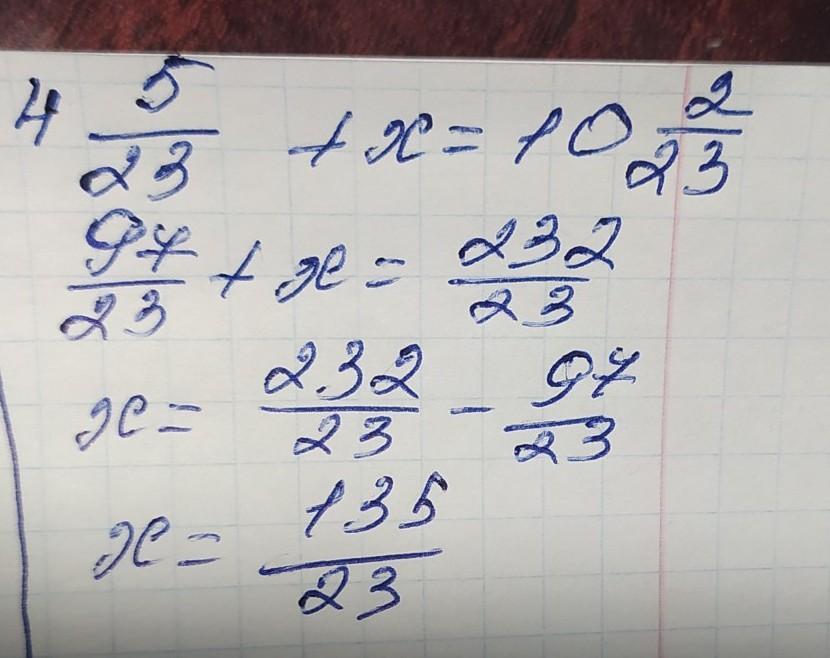 4 5/23 + x = 10 2/23
97/23 + x = 232/23
x = 232/23 - 97/23
x = 135/23